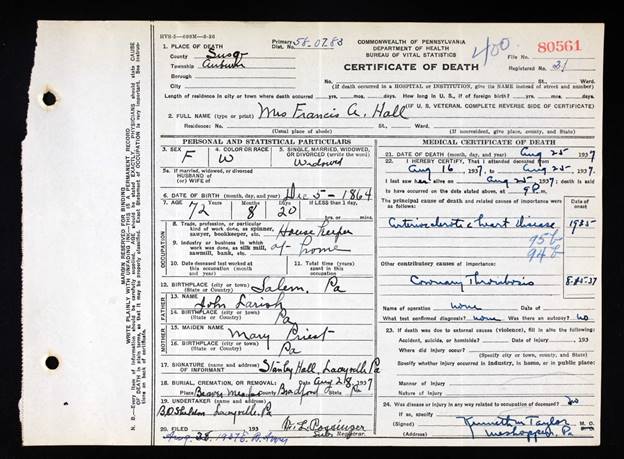 HVS-5-600M-8-36
Primary Dist. No. 58.07.83
COMMONWEALTH OF PENNSYLVANIA
DEPARTMENT OF HEALTH
BUREAU OF VITAL STATISTICS
CERTIFICATE OF DEATH
400
File No. 80561
Registered No. 21
1. PLACE OF DEATH
County Susq
Township Auburn
Borough
City No. St. Ward.
(If death occurred in a HOSPITAL or INSTITUTION, give its NAME instead of street and number)
Length of residence in city or town where death occurred yrs. mos. days. How long in U. S., if of foreign birth? yrs. mos. days
(If U. S. VETERAN, COMPLETE REVERSE SIDE OF CERTIFICATE)
2. FULL NAME (type or print) Mrs Francis A. Hall
Residence: No. St. Ward.
(Usual place of abode) (If nonresident, give place, county, and State)
PERSONAL AND STATISTICAL PARTICULARS
3. SEX F
4. COLOR OR RACE W
5. SINGLE, MARRIED, WIDOWED, OR DIVORCED (write the word) Widowed
5a. If married, widowed, or divorced
HUSBAND of
(or) WIFE of
6. DATE OF BIRTH (month, day, and year) Dec 5 - 1864
7. AGE Years 72 Months 8 Days 20 If LESS than 1 day, hrs. or min.
8. Trade, profession, or particular kind of work done, as spinner, sawyer, bookkeeper, etc. House Keeper
9. Industry or business in which work was done, as silk mill, sawmill, bank, etc. at home
10. Date deceased last worked at this occupation (month and year)
11. Total time (years) spent in this occupation
12. BIRTHPLACE (city or town) Salem, Pa
(State or Country)
FATHER
13. NAME John Larish
14. BIRTHPLACE (city or town) Pa
(State or Country)
MOTHER
15. MAIDEN NAME Mary Priest
16. BIRTHPLACE (city or town) Pa
(State or Country)
17. SIGNATURE (and address) OF INFORMANT Stanley Hall, Laceyville, Pa
18. BURIAL, CREMATION, OR REMOVAL: Date Aug 28 1937
Place Beaver Meadow County Bradford State Pa
19. UNDERTAKER (name and address)
Laceyville, Pa
20. FILED 193
Registrar.
MEDICAL CERTIFICATE OF DEATH
21. DATE OF DEATH (month, day, and year) Aug 25 1937
22. I HEREBY CERTIFY, That I attended deceased from
Aug 16 1937, to Aug 25 1937
I last saw her alive on Aug 25 1937; death is said
to have occurred on the date stated above, at 9 P. m.
The principal cause of death and related causes of importance were as follows: Date of onset
Arteriosclerotic heart disease 1935
95b
94b
Other contributory causes of importance:
Coronary Thrombosis 8-25-37
Name of operation none Date of
What test confirmed diagnosis? none Was there an autopsy? no
23. If death was due to external causes (violence), fill in also the following:
Accident, suicide, or homicide? Date of injury 193
Where did injury occur?
(Specify city or town, county, and State)
Specify whether injury occurred in industry, in home, or in public place.
Manner of injury
Nature of injury
24. Was disease or injury in any way related to occupation of deceased? no
If so, specify
(Signed) Kenneth M Taylor M. D.
(Address) Meshoppen, Pa
MARGIN RESERVED FOR BINDING
WRITE PLAINLY WITH UNFADING INK—THIS IS A PERMANENT RECORD